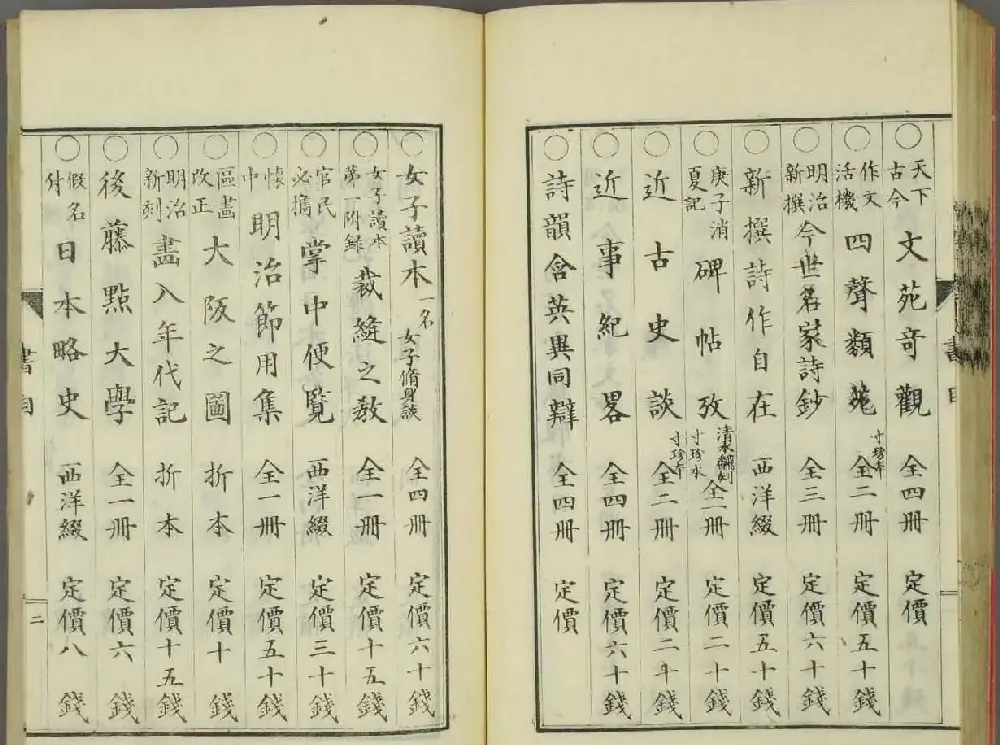 ○天下古今文苑奇觀 全四冊 定價
○作文活機四聲類苑 寸珍本 全二冊 定價五十錢
○明治新撰今世名家詩鈔 全三冊 定價六十錢
○新撰詩作自在 西洋綴 定價五十錢
○庚子消夏記碑帖攷 清水 寸珍本 全一冊 定價二十錢
○近古史談 寸珍本 全二冊 定價二十錢
○近事紀畧 全四冊 定價六十錢
○詩韻含英異同辯 全四冊 定價
書目
○女子讀本 一名女子脩身談 全四冊 定價六十錢
○女子讀本第一附錄裁縫之教 全一冊 定價十五錢
○官民必携掌中便覽 西洋綴 定價三十錢
○懷中明治節用集 全一冊 定價五十錢
○區畫改正大阪之圖 折本 定價十錢
○明治新刻畫入年代記 折本 定價十五錢
○後藤點大學 全一冊 定價六錢
○假名付日本略史 西洋綴 定價八錢
書目
二